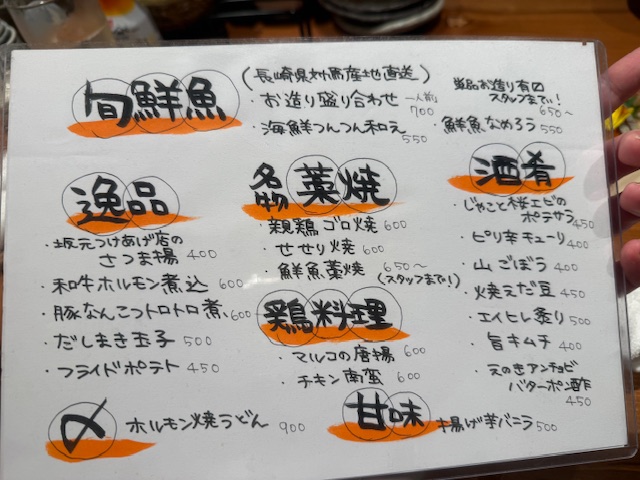 旬鮮魚
(長崎県対馬産地直送)
・お造り盛り合わせ 一人前 700
・海鮮つんつん和え 550
単品お造り有り
スタッフまで!
650〜
鮮魚なめろう 550
逸品
・坂元つけあげ店の
さつま揚 400
・和牛ホルモン煮込 600
・豚なんこつトロトロ煮 600
・だしまき玉子 500
・フライドポテト 450
名物 藁焼
・親鶏ゴロ焼 600
・せせり焼 600
・鮮魚藁焼 650〜
(スタッフまで!)
鶏料理
・マルコの唐揚 600
・チキン南蛮 600
酒肴
・じゃこと桜エビの
ポテサラ 450
・ピリ辛キューリ 400
・山ごぼう 400
・焼えだ豆 450
・エイヒレ炙り 500
・旨キムチ 400
・えのきアンチョビ
バターポン酢 450
〆 ホルモン焼うどん 900
甘味 揚げ芋バニラ 500